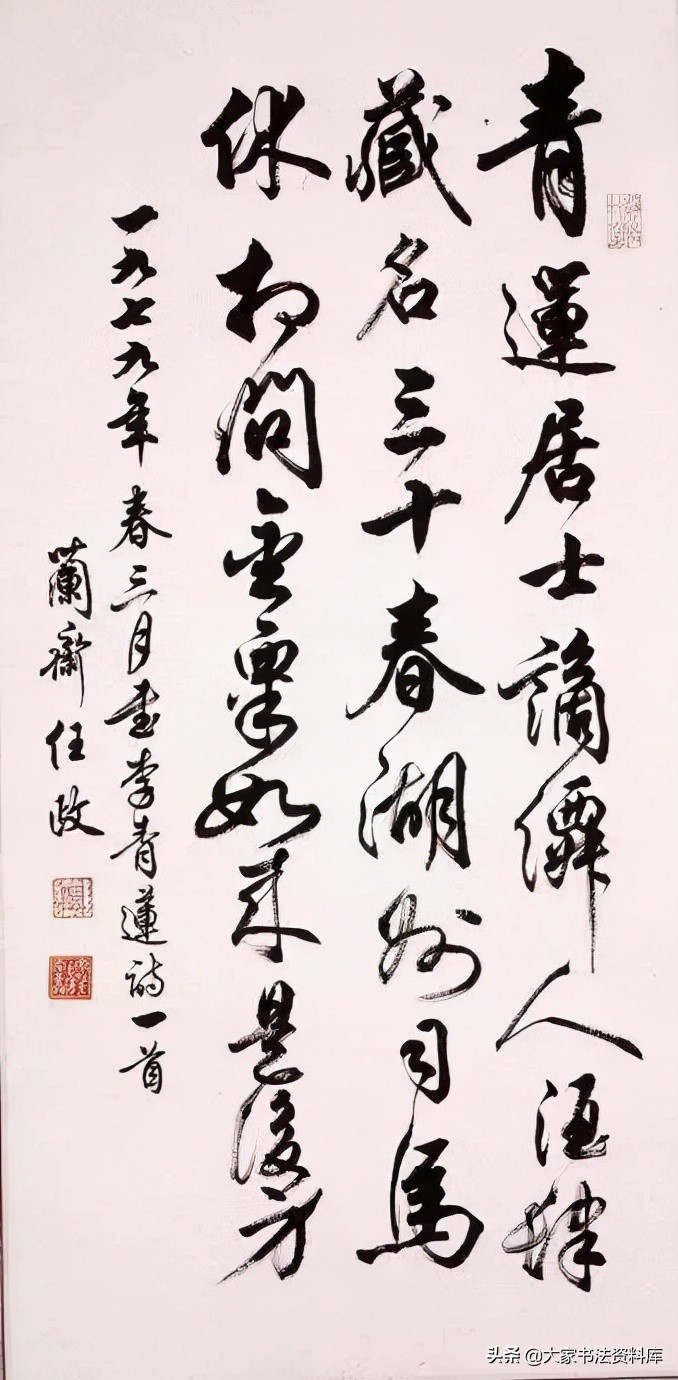 青蓮居士謫僊人酒肆
藏名三十春湖州司馬
休相問金粟如來是後身
一九七九年春三月書李青蓮詩一首
蘭齋任政
头条 @大家书法资料库